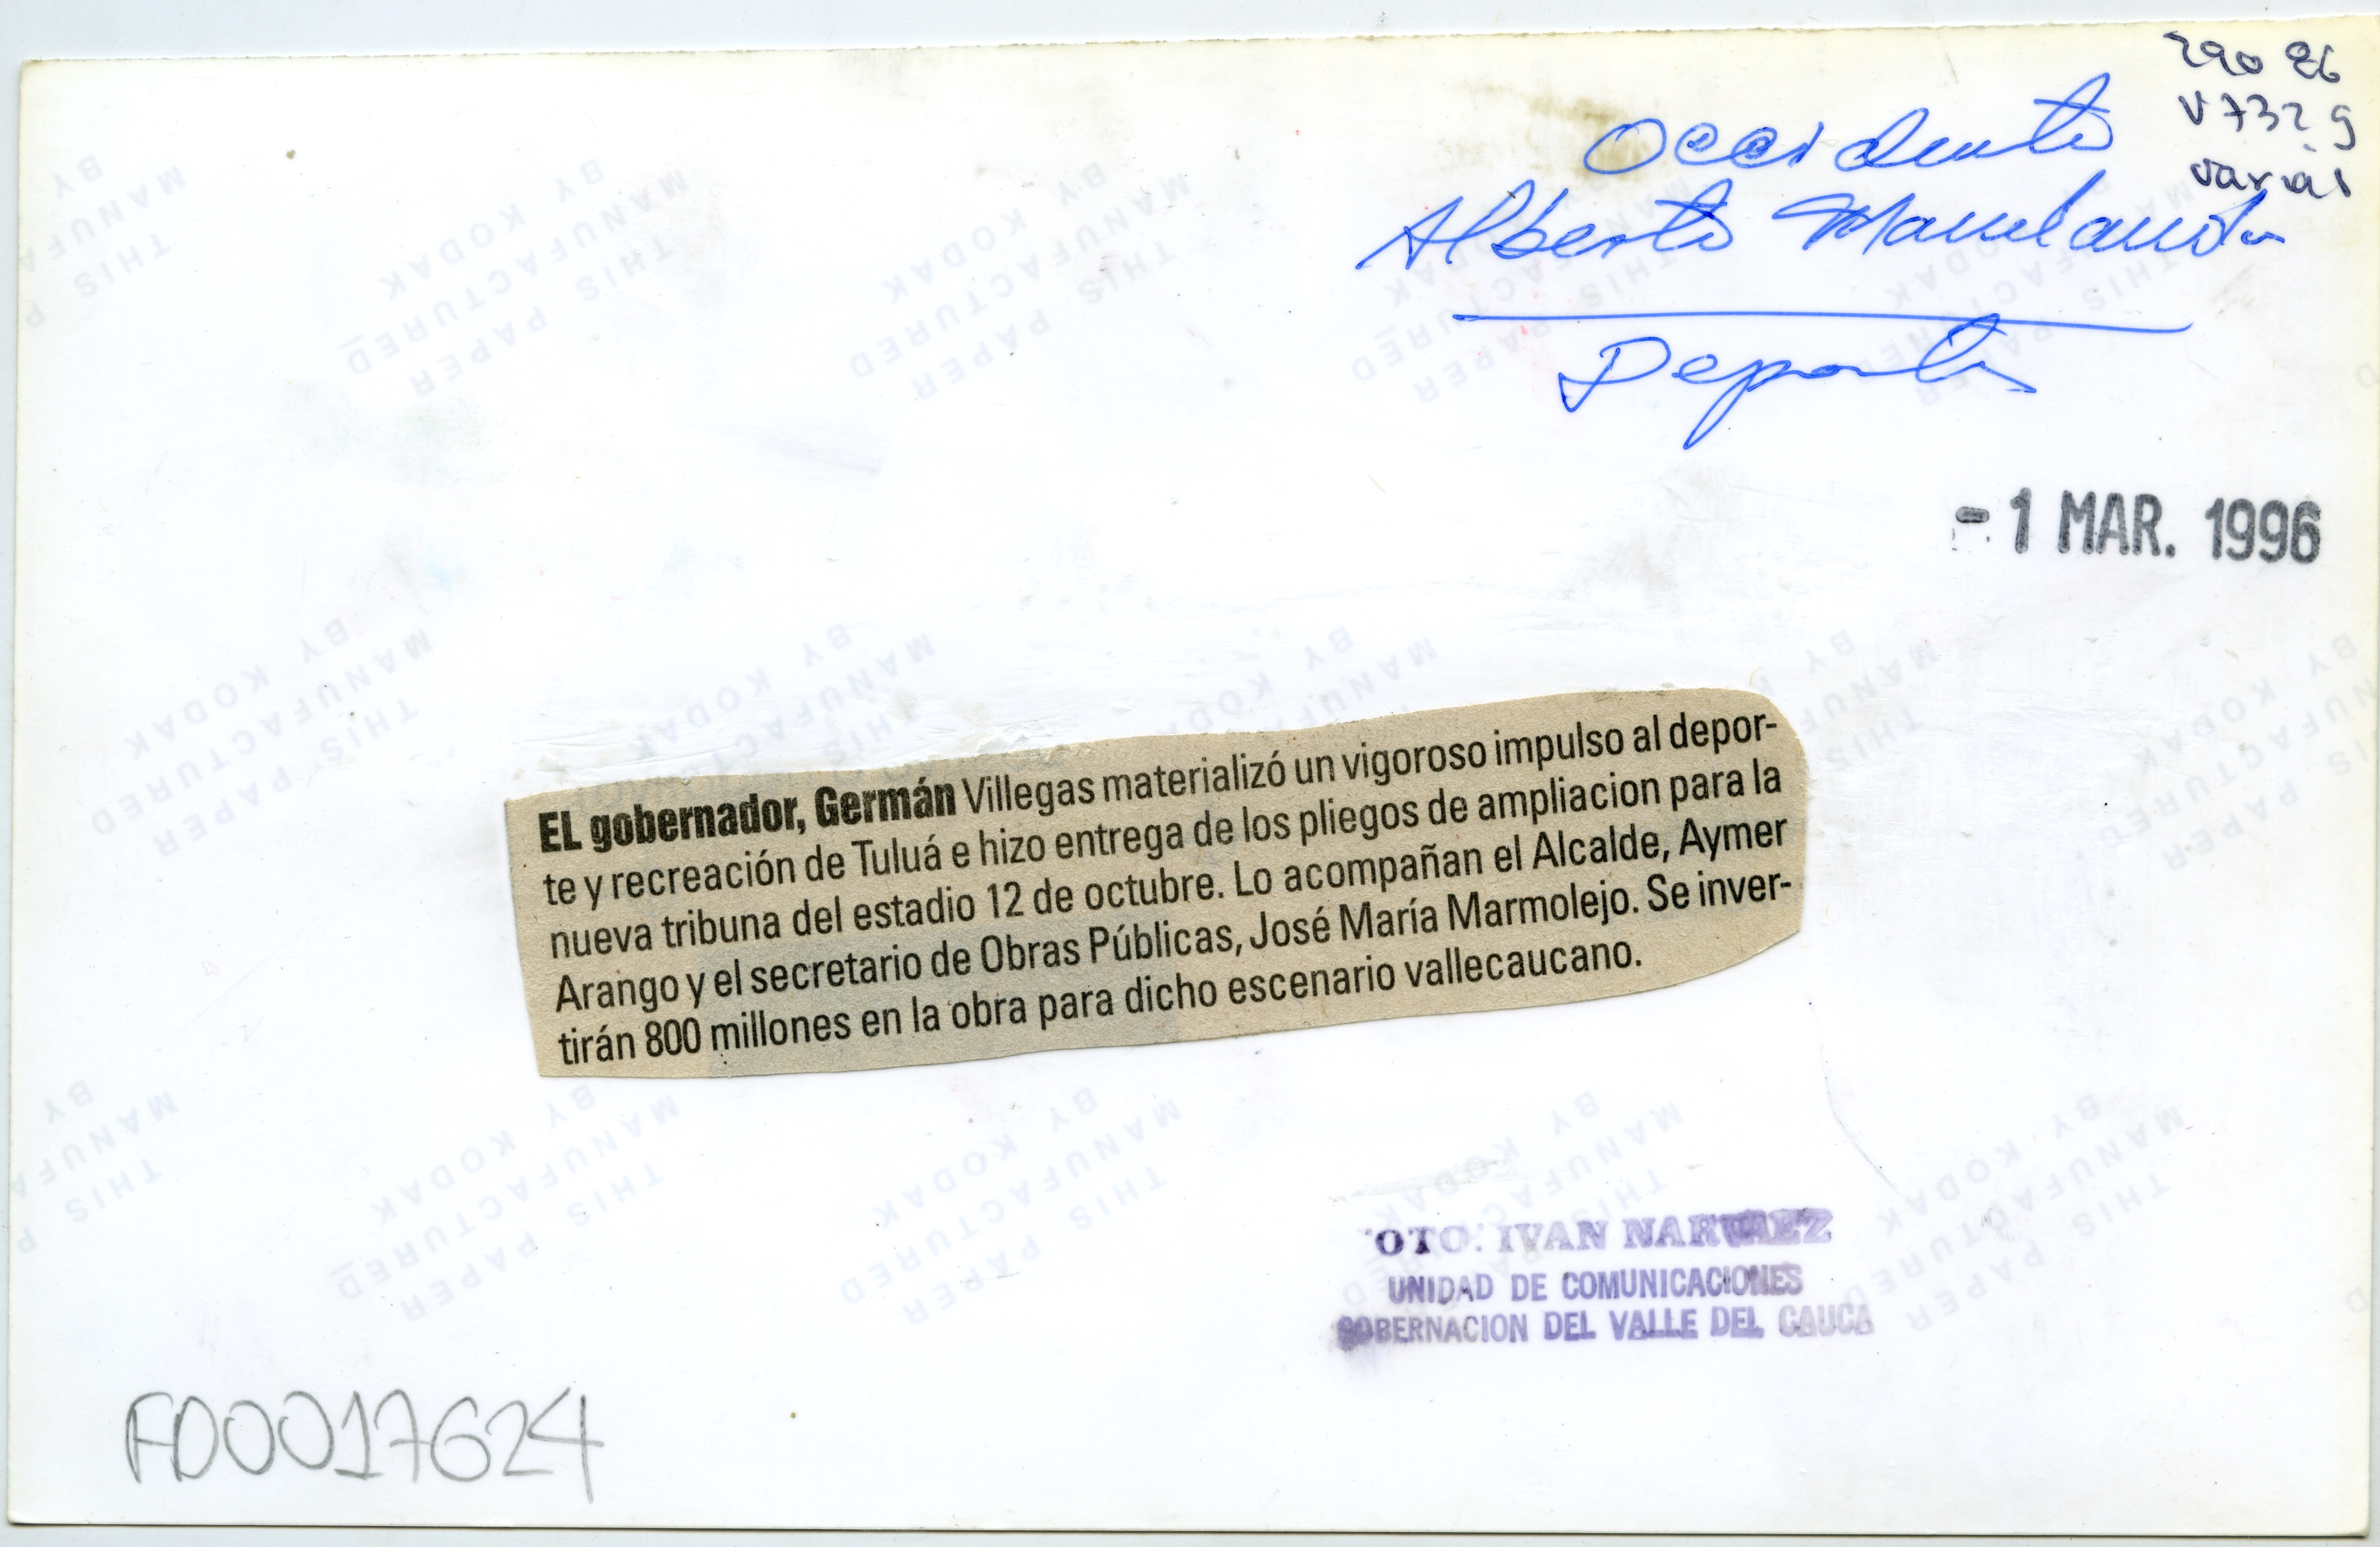 290 86
V732g
varias
Occidente
Alberto
Deportes
-1 MAR. 1996
EL gobernador, Germán Villegas materializó un vigoroso impulso al depor-
te y recreación de Tuluá e hizo entrega de los pliegos de ampliacion para la
nueva tribuna del estadio 12 de octubre. Lo acompañan el Alcalde, Aymer
Arango y el secretario de Obras Públicas, José María Marmolejo. Se inver-
tirán 800 millones en la obra para dicho escenario vallecaucano.
OTO: IVAN NARVAEZ
UNIDAD DE COMUNICACIONES
GOBERNACION DEL VALLE DEL CAUCA
FD0017624
THIS PAPER
MANUFACTURED
BY KODAK